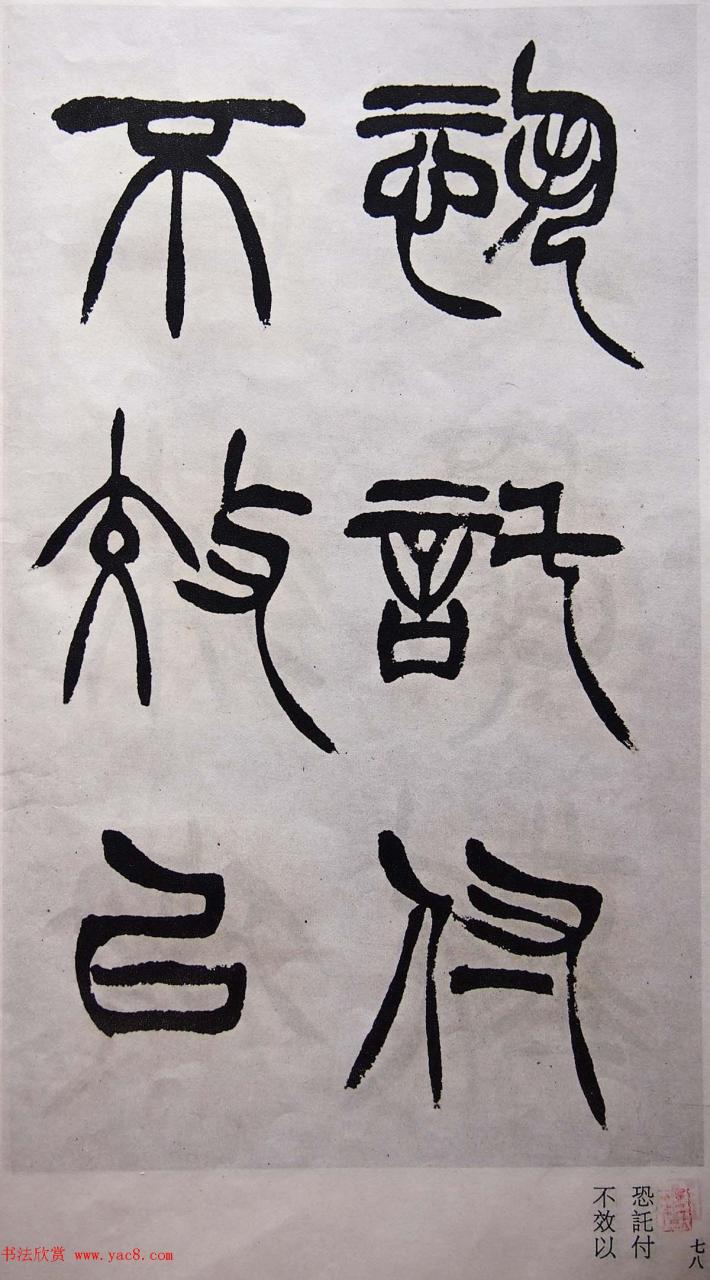 恐託付
不效以
恐託付
不效以
七八
书法欣赏 www.yac8.com